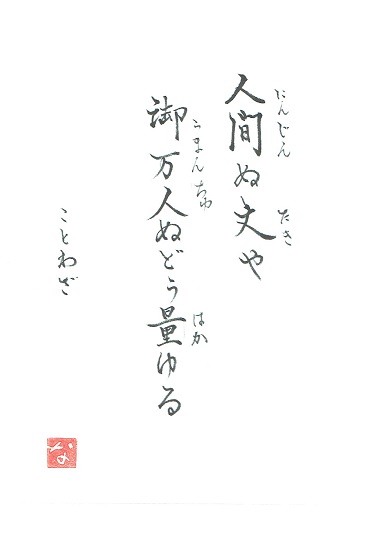 人間ぬ丈や
にんじん
たき
御万人ぬどぅ量ゆる
うまんちゅ
はか
ことわざ
な